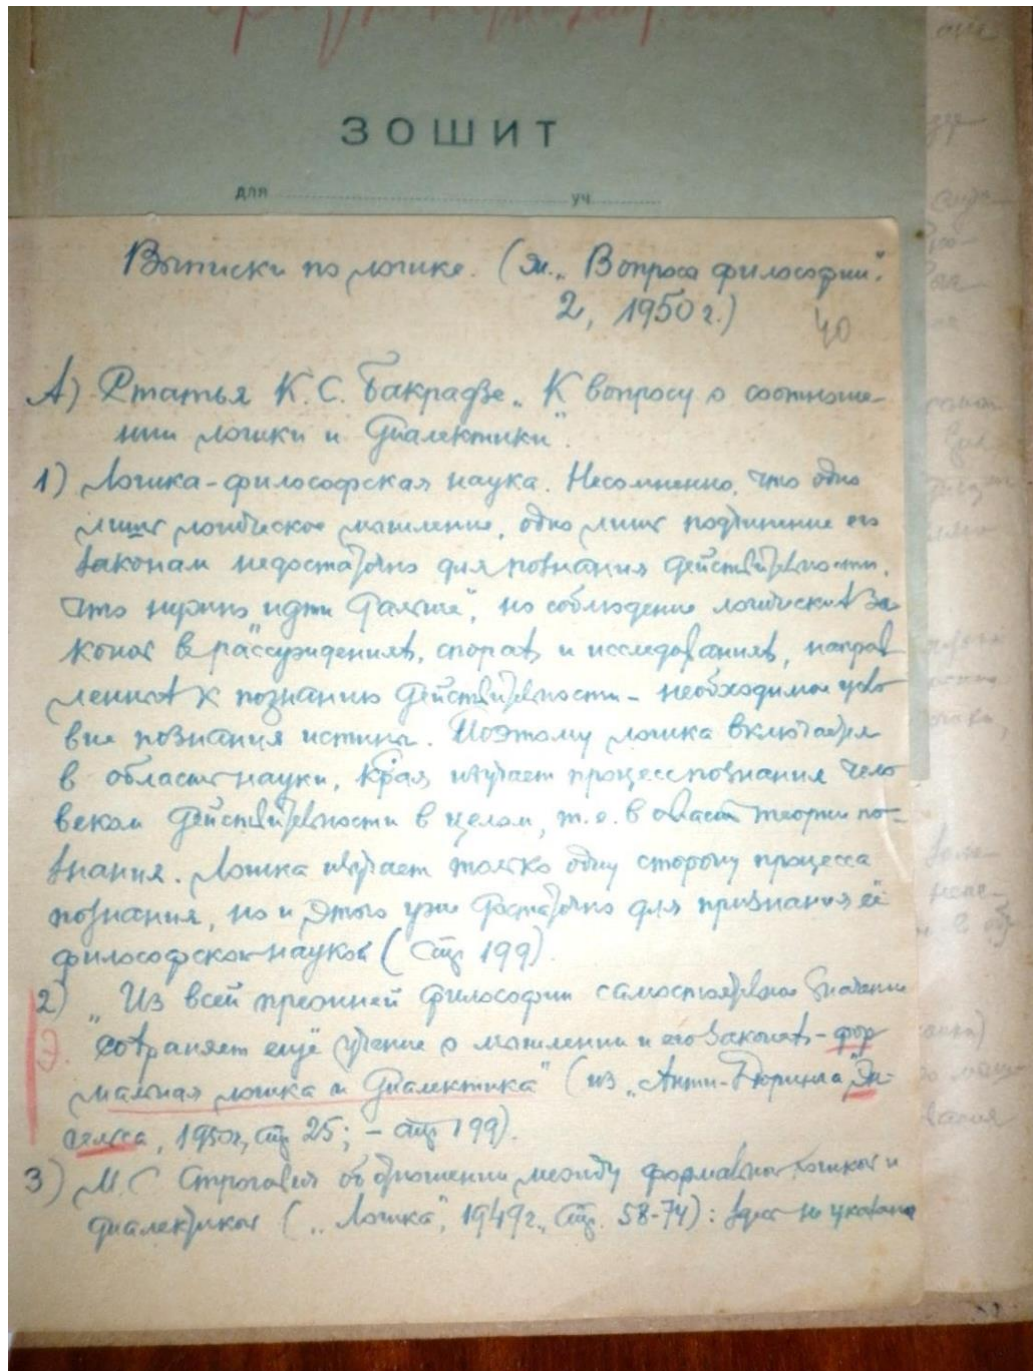 ЗОШИТ
для уч
Выписки по логике. (Ж. „Вопросы философии".
2, 1950 г.)
40
А) Статья К. С. Бакрадзе „К вопросу о соотноше-
нии логики и диалектики".
1) Логика - философская наука. Несомненно, что одно
лишь логическое мышление, одно лишь подчинение его
законам недостаточно для познания действительности,
что нужно „идти дальше", но соблюдение логических за
конов в рассуждениях, спорах и исследованиях, направ
ленных к познанию действительности - необходимое усло
вие познания истины. Поэтому логика включается
в область науки, края изучает процесс познания чело
веком действительности в целом, т. е. в область теории по-
знания. Логика изучает только одну сторону процесса
познания, но и этого уже достаточно для признания её
философской наукой (стр 199).
2) „Из всей прежней философии самостоятельное значение
Э. сохраняет ещё учение о мышлении и его законах - фор
мальная логика и диалектика" (из „Анти-Дюринга" Эн-
гельса, 1950г, стр 25; - стр 199).
3) М. С Строгович об отношении между формальной логикой и
диалектикой („Логика", 1949г., стр. 58-74): здесь не указано